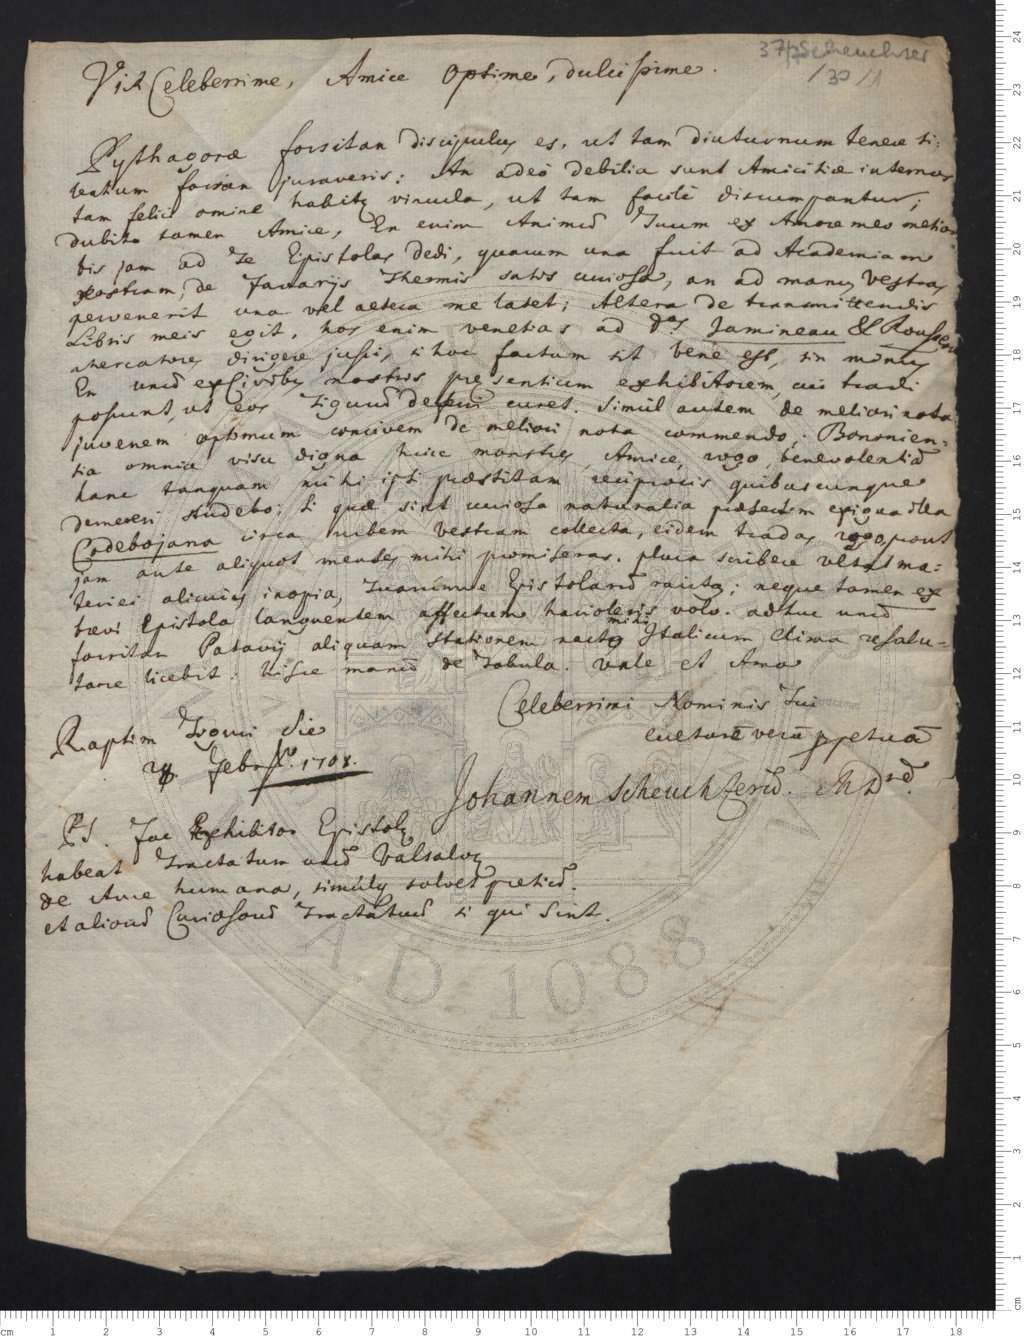 37/Scheuchzer
/30/1
Vir Celeberrime, Amice Optime, dulcissime.
Pythagoræ forsitan discipulus es, ut tam diuturnum tenere si-
lentium forsan juraveris; An adeò debilia sunt Amicitiæ internos
tam felici omine habitæ vincula, ut tam facilè discumpantur;
dubito tamen Amice, En enim Animũ Tuum ex Amore meo metior
bis jam ad Te Epistolas dedi, quarum una fuit ad Academiam
vestram, de Favarijs Thermis satis curiosa, an ad manus vestras
pervenerit una vel altera me latet; Altera de transmittendis
Libris meis egit, hos enim venetias ad d.os Jamineau & Rousseau
mercatores dirigere jussi, si hoc factum sit bene est, sin minus
En unũ ex Civibus nostris præsentium exhibitorem, cui tradi
possunt, ut eos Tigurũ deferri curet. Simul autem de meliori nota
juvenem optimum concivem de meliori nota commendo; Bononien-
sia omnia visu digna huic monstres, Amice, rogo, benevolentiã
hanc tanquam mihi ipsi præstitam reciprocis quibuscunque
demereri studebo; si quæ sint curiosa naturalia præsertim exigua illa
Codebojana circa urbem vestram collecta, eidem tradas rogo, prout
jam ante aliquot menses mihi promiseras. plura scribere vetat ma-
teriei alicujus inopia, Tuarumue Epistolarũ raritas; neque tamen ex
brevi Epistola languentem affectum harioleris volo. adhuc unũ
forsitan Patavij aliquam stationem nacto mihi Italicum Clima resalu-
tare licebit. hisce manũ de Tabula. Vale et Ama
Celeberrimi Nominis Tui
cultorẽ verũ ppetuũ
Johannem Scheuchzerũ. M D.rẽ.
Raptim Tiguri die
28. Febr. 1708.
PS. Fac Exhibitor Epistolæ
habeat Tractatum unũ Valsalvæ
de Aure humana, simulq solvet pretiũ.
et alior̃ũ Curiosor̃ũ Tractatuũ si qui sint.
A.D. 1088